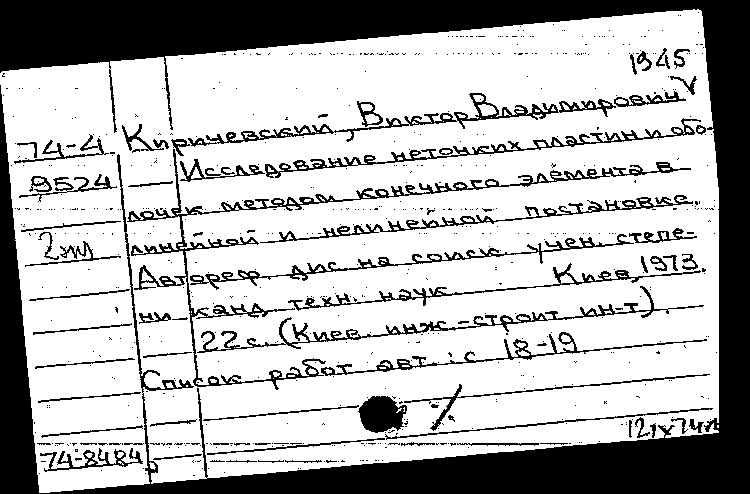 1945
74-4 Киричевский, Виктор Владимирович
9524 Исследование нетонких пластин и обо-
лочек методом конечного элемента в
2 линейной и нелинейной постановке.
Автореф. дис. на соиск. учен. степе-
ни канд. техн. наук Киев, 1973.
22 с. (Киев. инж.-строит. ин-т).
Список работ авт.: с 18-19
74-8484